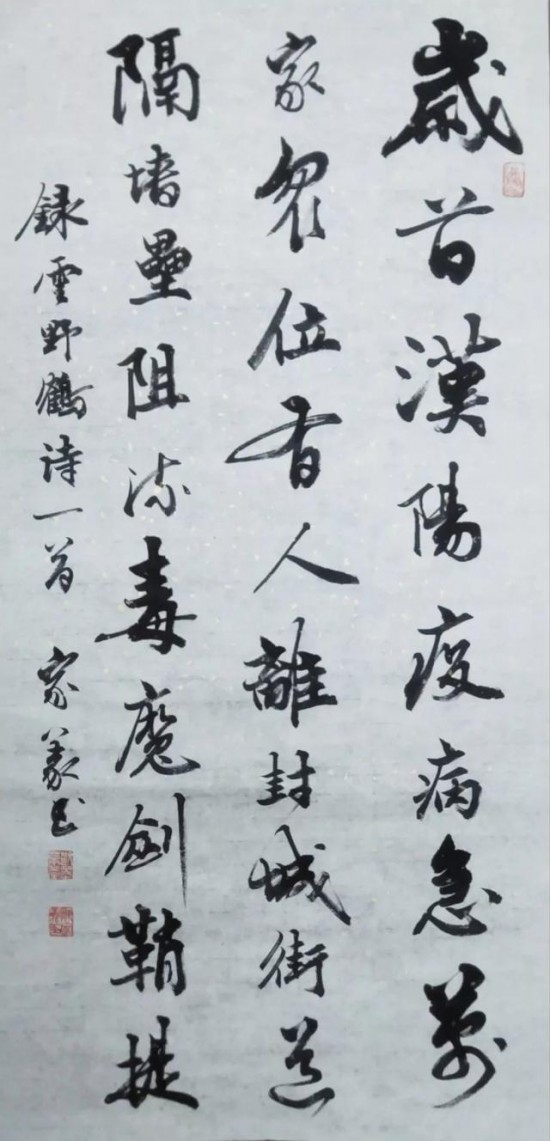 歲首漢陽疫病急萬
家眾位有人離封城街道
隔墻壘阻流毒魔劍鞘提
録雲野鶴诗一首 家義书